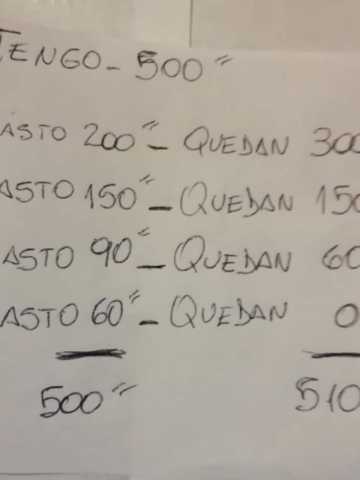 TENGO - 500"
ASTO 200" - QUEDAN 300
ASTO 150" - QUEDAN 150
ASTO 90" - QUEDAN 60
ASTO 60" - QUEDAN 0
500" 510